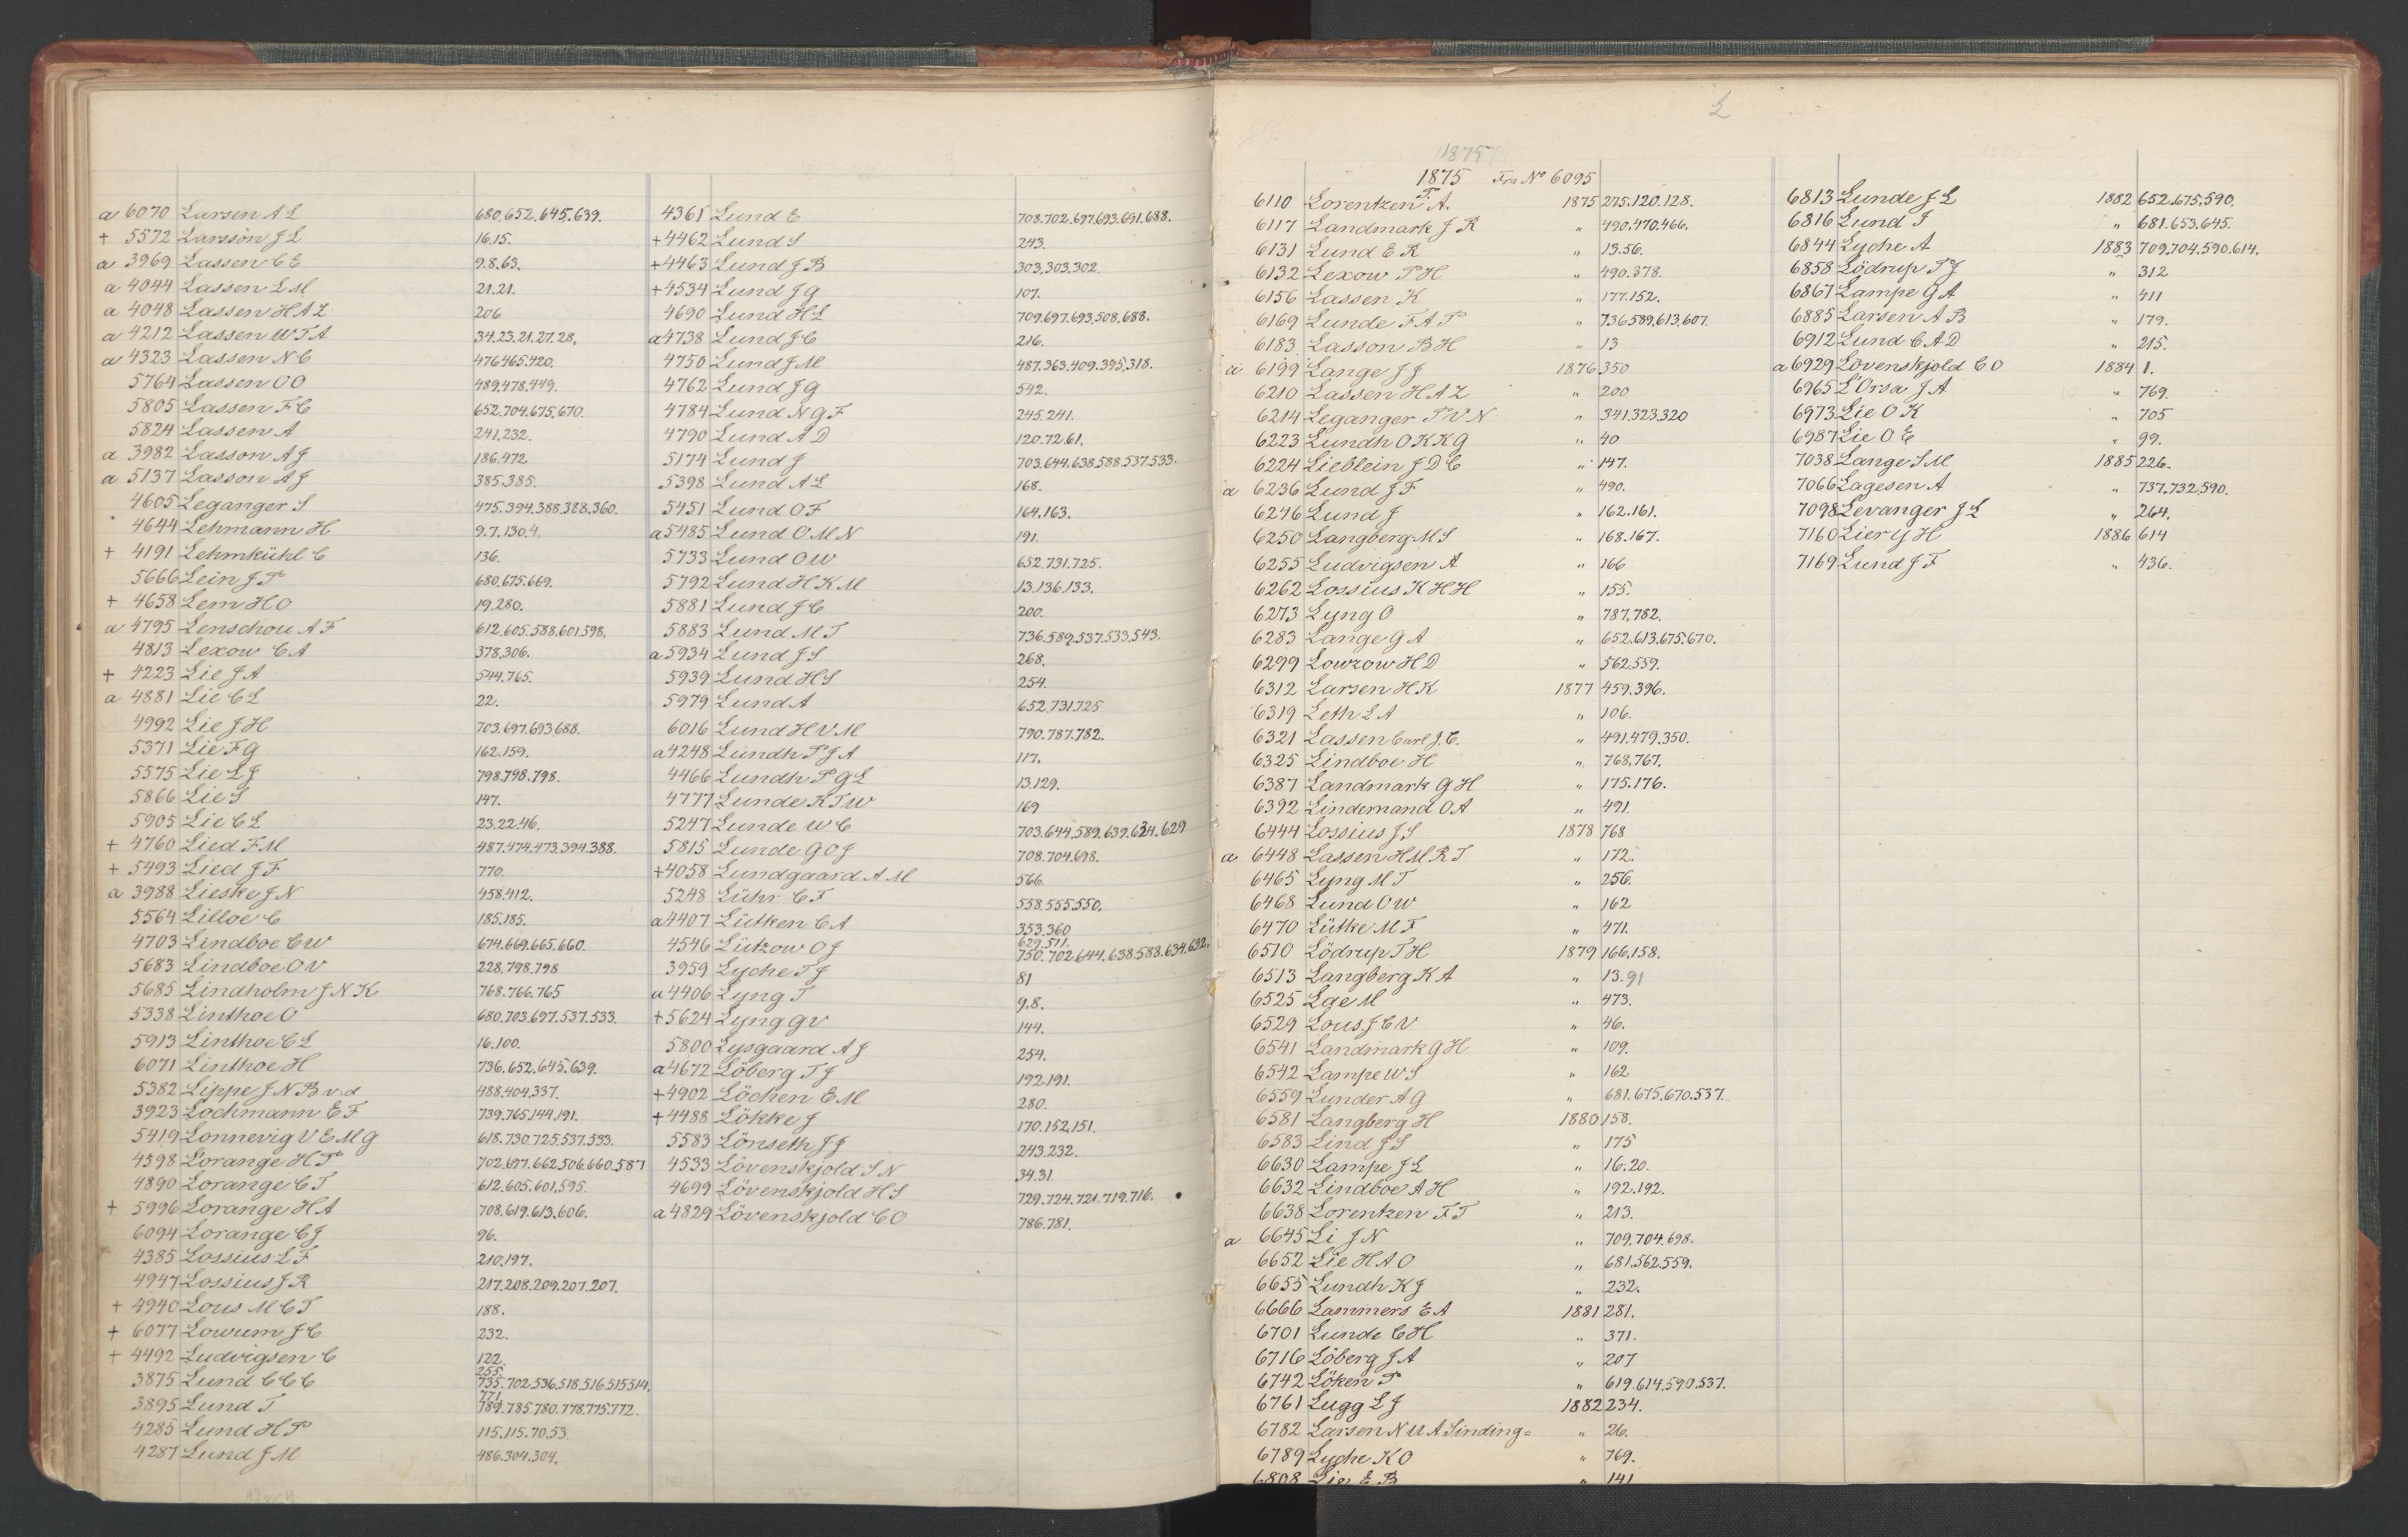 a 6070 Larsen A L 680.652.645.639.
+ 5572 Larssön J L 16.15.
a 3969 Lassen C E 9.8.63.
a 4044 Lassen L M 21.21.
a 4048 Lassen H A Z 206
a 4212 Lassen W T A 34.23.21.27.28.
a 4323 Lassen N C 476.465.420.
5764 Lassen O O 489.478.449.
5805 Lassen F C 652.704.675.670.
5824 Lassen A 241.232.
a 3982 Lasson A J 186.472
a 5137 Lasson A J 385.385.
4605 Leganger S 475.394.388.388.360.
4644 Lehmann H 9.7.130.4.
+ 4191 Lehmkühl C 136.
5666 Lein J P 680.675.669.
+ 4658 Lem H O 19.280.
a 4795 Lenschou A F 612.605.588.601.598.
4813 Lexow C A 378.306.
+ 4223 Lie J A 544.765.
a 4881 Lie C L 22.
4992 Lie J H 703.697.693.688.
5371 Lie F G 162.159.
5575 Lie L J 798.798.798.
5866 Lie S 147.
5905 Lie C L 23.22.46.
+ 4760 Lied F M 487.474.473.394.388.
+ 5493 Lied J F 770.
a 3988 Lieske J N 458.412.
5564 Lilloe C 185.185.
4703 Lindboe C W 674.669.665.660.
5683 Lindboe O V 228.798.798
5685 Lindholm J N K 768.766.765
5338 Linthoe O 680.703.697.537.533.
5913 Linthoe C L 16.100.
6071 Linthoe H 736.652.645.639.
5382 Lippe J N B v.d 488.404.337.
3923 Lochmann E F 739.765.144.191.
5419 Lonnevig V E M G 618.730.725.537.533.
4598 Lorange H P 702.697.662.506.660.587
4890 Lorange C T 612.605.601.595.
+ 5996 Lorange H A 708.619.613.606.
6094 Lorange C J 96.
4385 Lossius L F 210.197.
4947 Lossius J R 217.208.209.207.207.
+ 4940 Lous M C T 188.
+ 6077 Lowum J C 232.
+ 4492 Ludvigsen C 122.
255.
3875 Lund C C C 735.702.536.518.516.515.514.
771.
3895 Lund T 789.785.780.778.775.772.
4285 Lund H P 115.115.70.53.
4287 Lund J M 486.304.304.
4361 Lund E 708.702.697.693.691.688.
+4462 Lund S 243.
+4463 Lund J B 303.303.302
+4534 Lund J G 107.
4690 Lund H L 709.697.693.508.688.
a4738 Lund J C 216.
4750 Lund J M 487.363.409.395.318.
4762 Lund J G 542.
4784 Lund N G F 245.241.
4790 Lund A D 120.72.61.
5174 Lund J 703.644.638.588.537.533.
5398 Lund A L 168.
5451 Lund O F 164.163.
a5485 Lund O M N 191.
5733 Lund O W 652.731.725.
5792 Lund H K M 13.136.133.
5881 Lund J C 200.
5883 Lund M T 736.589.537.533.543.
a5934 Lund J S 268.
5939 Lund H S 254.
5979 Lund A 652.731.725
6016 Lund H V M 790.787.782.
a4248 Lundh P J A 117.
4466 Lundh P G L 13.129.
4777 Lunde K T W 169
5247 Lunde W C 703.644.589.639.634.629
5815 Lunde G O J 708.704.698.
+4058 Lundgaard A M 566.
5248 Lühr C F 558.555.550.
a4407 Lütken C A 353.360
629.511.
4546 Lützow O J 750.702.644.638.588.634.632.
3959 Lyche T J 81
a4406 Lyng T 9.8.
+5624 Lyng G V 144.
5800 Lysgaard A J 254.
a4672 Löberg T J 192.191.
+4902 Löchen E M 280.
+4488 Lökke J 170.152.151.
5583 Lönseth J J 243.232.
4533 Lövenskjold S N 34.31.
4699 Lövenskjold H S 729.724.721.719.716.
a4829 Lövenskjold C O 786.781.
L
1875
1875 Fra No 6095
6110 Lorentzen T. A. 1875 275.120.128.
6117 Landmark J R " 490.470.466.
6131 Lund E R " 13.56.
6132 Lexow P H " 490.378.
6156 Lassen K " 177.152.
6169 Lunde F A P " 736.589.613.607.
6183 Lasson B H " 13
a 6199 Lange J J 1876 350
6210 Lassen H A Z " 200
6214 Leganger P W N " 341.323.320
6223 Lundh O K K G " 40
6224 Lieblein J D C " 147.
a 6236 Lund J F " 490.
6246 Lund J " 162.161.
6250 Langberg M S " 168.167.
6255 Ludvigsen A " 166
6262 Lossius K H H " 155.
6273 Lyng O " 787.782.
6283 Lange G A " 652.613.675.670.
6299 Lowzow H D " 562.559.
6312 Larsen H K 1877 459.396.
6319 Leth L A " 106.
6321 Lassen Carl J. C. " 491.479.350.
6325 Lindboe H " 768.767.
6387 Landmark G H " 175.176.
6392 Lindemand O A " 491.
6444 Lossius J S 1878 768
a 6448 Lassen H M R T " 172.
6465 Lyng M T " 256.
6468 Lund O W " 162
6470 Lütke M F " 471.
6510 Lödrup T H 1879 166.158.
6513 Langberg K A " 13.91
6525 Lae M " 473.
6529 Lous J C V " 46.
6541 Landmark G H " 109.
6542 Lampe W S " 162
6559 Lunder A G " 681.675.670.537.
6581 Langberg H 1880 158.
6583 Lind J S " 175
6630 Lampe J L " 16.20.
6632 Lindboe A H " 192.192.
6638 Lorentzen F T " 213.
a 6645 Li J N " 709.704.698.
6652 Lie H A O " 681.562.559.
6655 Lundh K J " 232.
6666 Lammers E A 1881 281.
6701 Lunde C H " 371.
6716 Löberg J A " 207
6742 Löken P " 619.614.590.537.
6761 Lugg L J 1882 234.
6782 Larsen N U A Sinding= " 26.
6789 Lyche K O " 769.
6808 Lie E B " 141
6813 Lunde J L 1882 652.675.590.
6816 Lund T " 681.653.645.
6844 Lyche A 1883 709.704.590.614.
6858 Lödrup P J " 312
6867 Lampe G A " 411
6885 Larsen A B " 179.
6912 Lund C A D " 215.
a 6929 Lövenskjold C O 1884 1.
6965 L'Orsa J A " 769.
6973 Lie O K " 705
6987 Lie O E " 99.
7038 Lange S M 1885 226.
7066 Lagesen A " 737.732.590.
7098 Levanger J L " 264.
7160 Lier y H 1886 614
7169 Lund J F " 436.